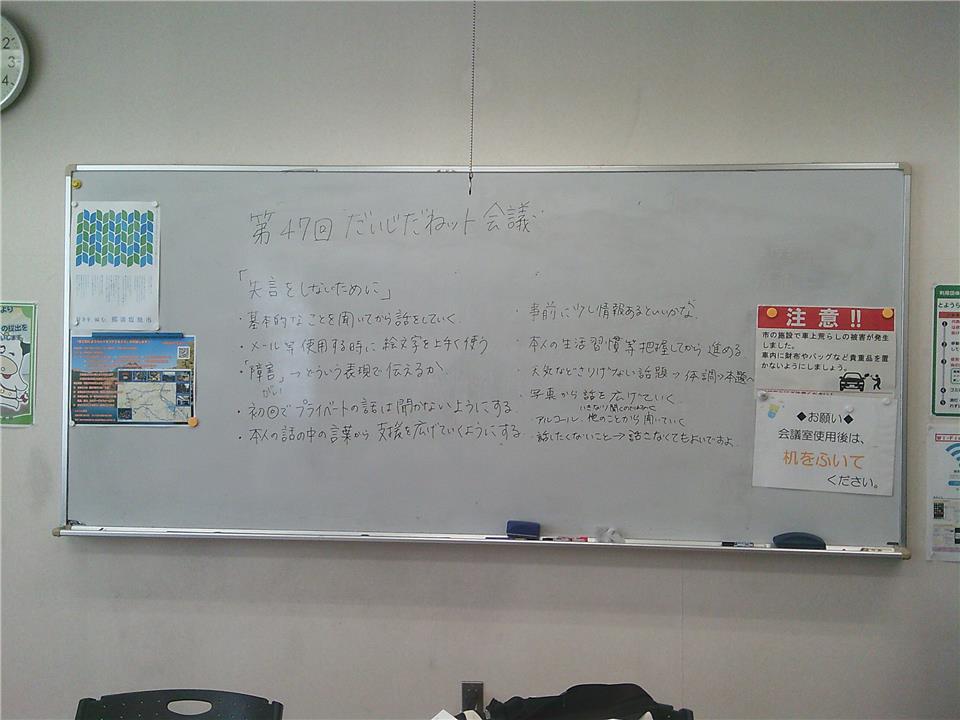 第47回 だいじだねット会議
「失言をしないために」
・基本的なことを聞いてから話をしていく
・メール等使用する時に絵文字を上手く使う
・「障害」→どういう表現で伝えるか
がい
・初回でプライベートの話は聞かないようにする
・本人の話の中の言葉から支援を広げていくようにする
・事前に少し情報あるといいかな
・本人の生活習慣等把握してから進める
・天気などさりげない話題→体調→本題へ
・写真から話を広げていく
アルコール、他のことから聞いていく
・話したくないこと→話さなくてもよいですよ
那須塩原市
注意!!
市の施設で車上荒らしの被害が発生
しました。
車内に財布やバッグなど貴重品を置
かないようにしましょう。
◆お願い◆
会議室使用後は、
机をふいて
ください。
2
3
4